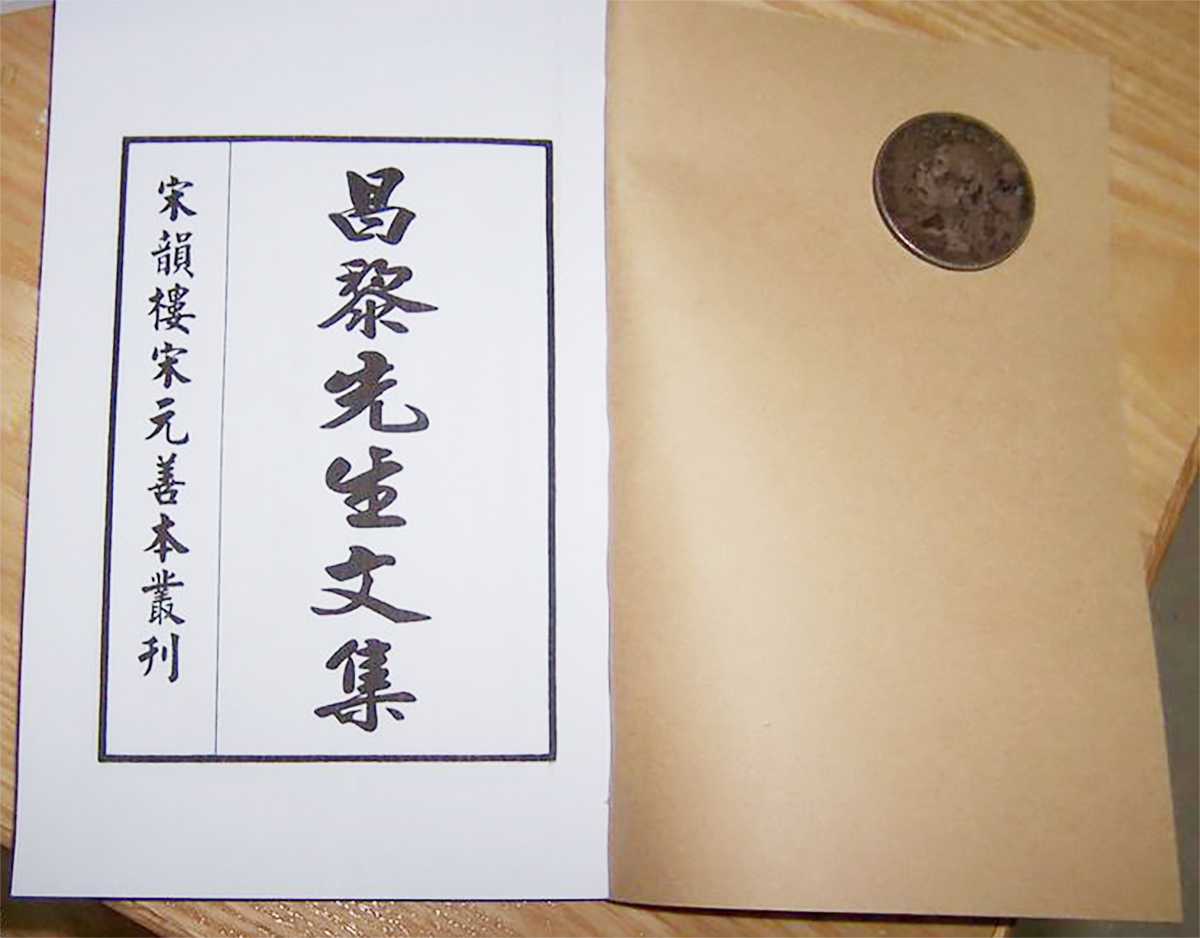 昌黎先生文集
宋韻樓宋元善本叢刊